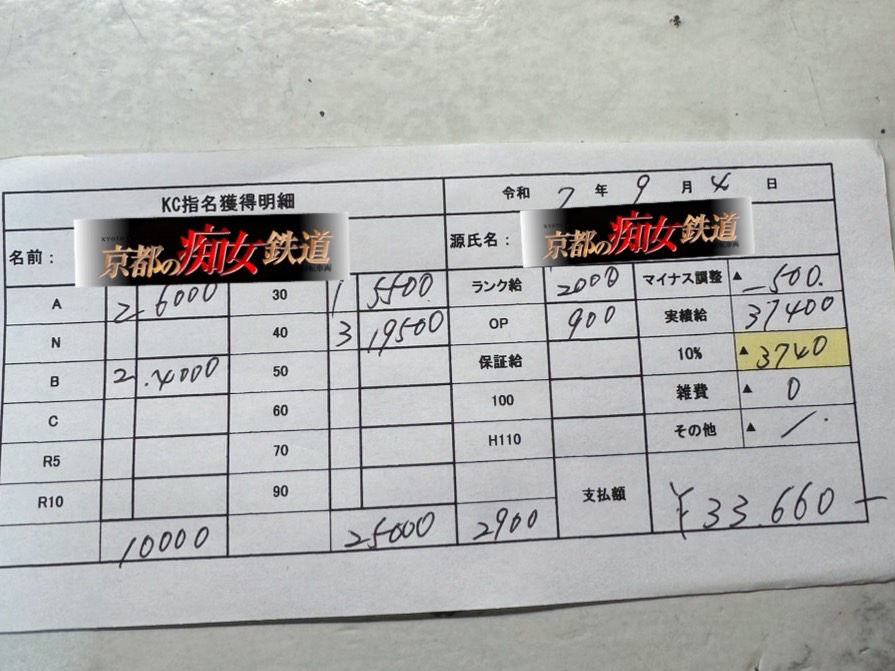 KC指名獲得明細 令和 7 年 9 月 4 日
名前： 京都の痴女鉄道 源氏名： 京都の痴女鉄道
A 2 6000 30 1 5500 ランク給 2000 マイナス調整 ▲ -500.
N 40 3 19500 OP 900 実績給 37400
B 2 .4000 50 保証給 10% ▲ 3740
C 60 100 雑費 ▲ 0
R5 70 H110 その他 ▲ /.
R10 90 支払額 ¥33.660-
10000 25000 2900